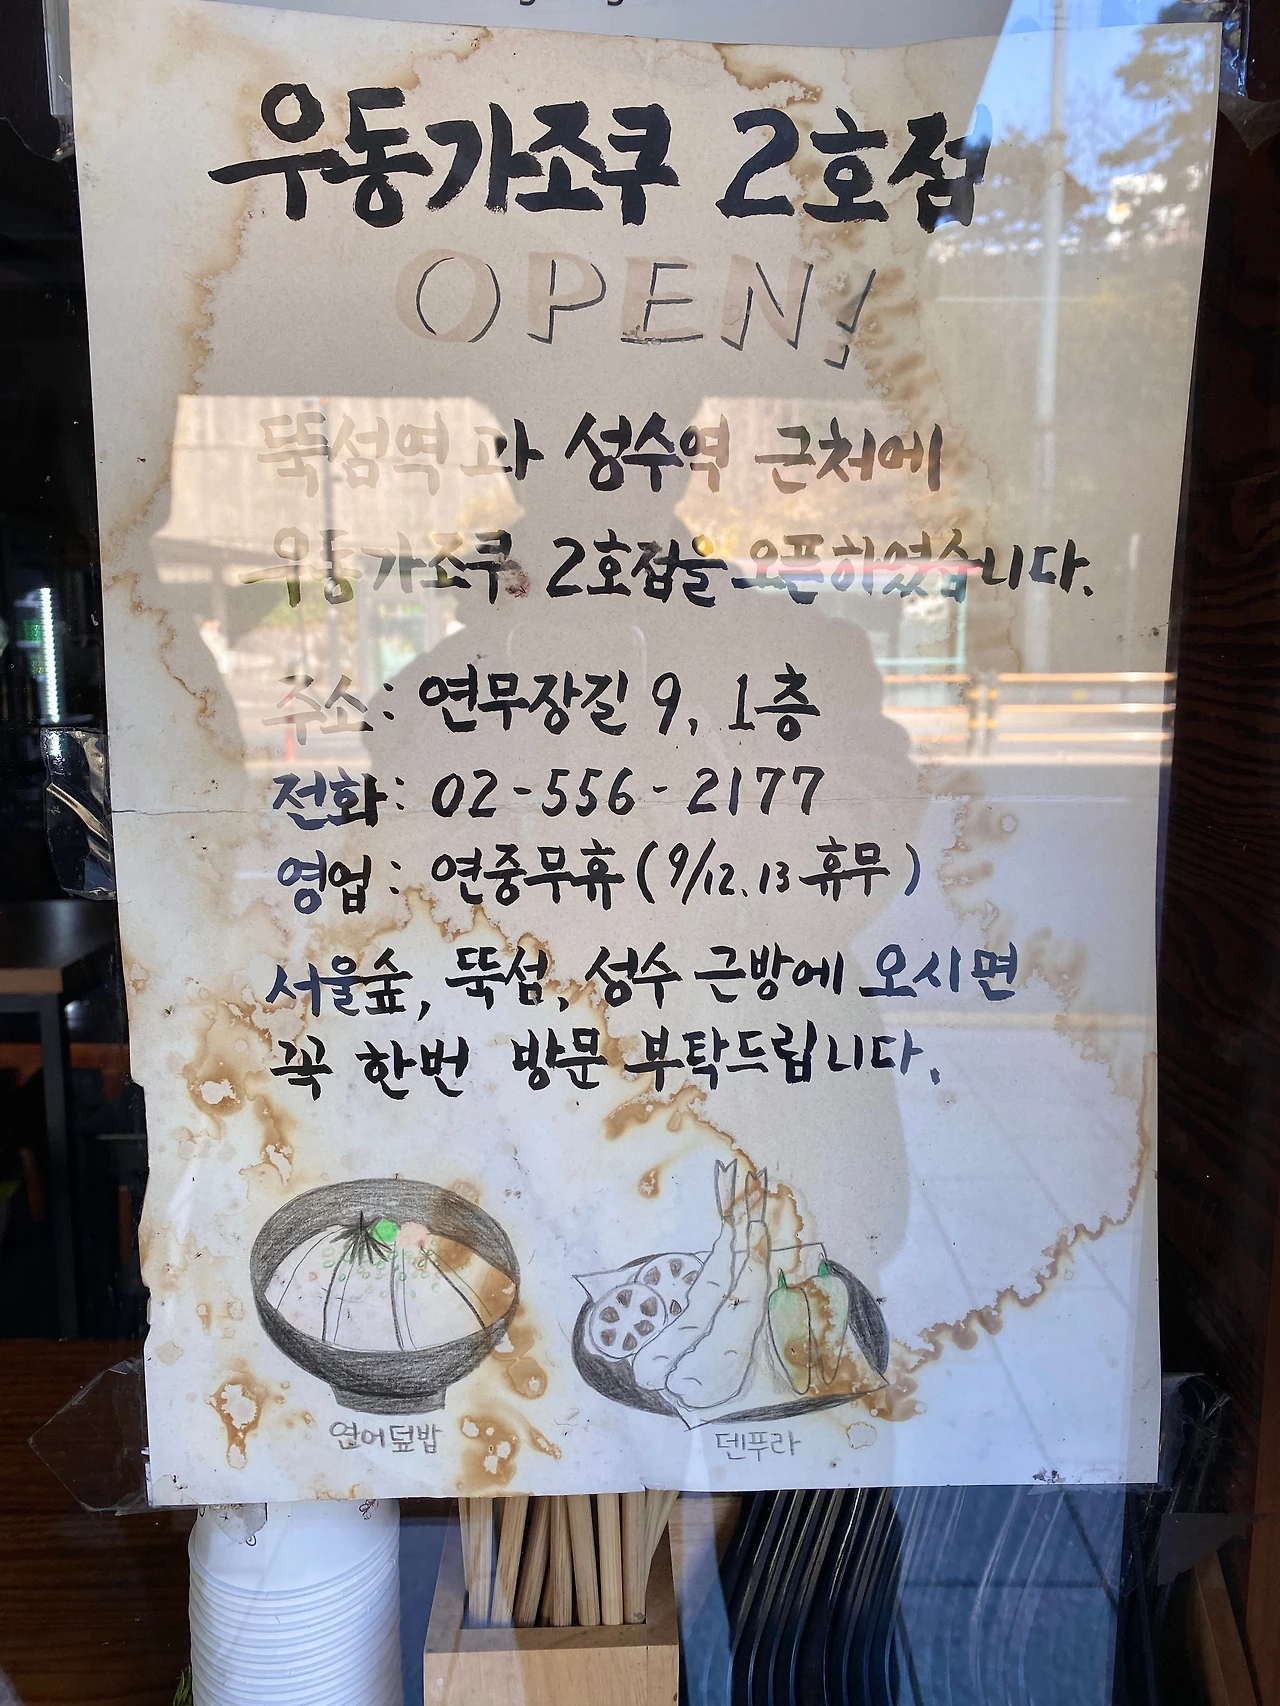 우동가조쿠 2호점
OPEN!
뚝섬역과 성수역 근처에
우동가조쿠 2호점을 오픈하였습니다.
주소: 연무장길 9, 1층
전화: 02-556-2177
영업: 연중무휴(9/12.13 휴무)
서울숲, 뚝섬, 성수 근방에 오시면
꼭 한번 방문 부탁드립니다.
연어덮밥
덴푸라